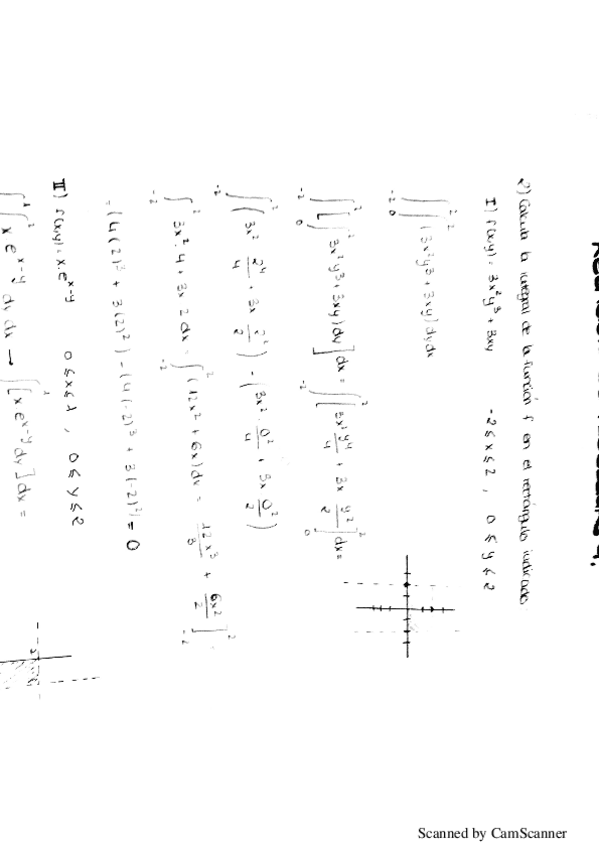 2) Calcula la integral de la función f en el rectángulo indicado
I) f(x,y) = 3x²y³ + 3xy   -2 ≤ x ≤ 2 , 0 ≤ y ≤ 2
∫₋₂² ∫₀² (3x²y³ + 3xy) dy dx
∫₋₂² [∫₀² 3x²y³ + 3xy) dy] dx = ∫₋₂² [3x² y⁴/4 + 3x y²/2]₀² dx =
∫₋₂² (3x² 2⁴/4 + 3x 2²/2) - (3x² · 0²/4 + 3x 0²/2)
∫₋₂² 3x² · 4 + 3x 2 dx = ∫₋₂² (12x² + 6x) dx = 12x³/3 + 6x²/2]₋₂²
= (4(2)³ + 3(2)²) - (4(-2)³ + 3(-2)²) = 0
II) f(x,y) = x · e^(x-y)   0 ≤ x ≤ 1 , 0 ≤ y ≤ 2
x e^(x-y) dy dx → [x e^(x-y) dy] dx =
Scanned by CamScanner